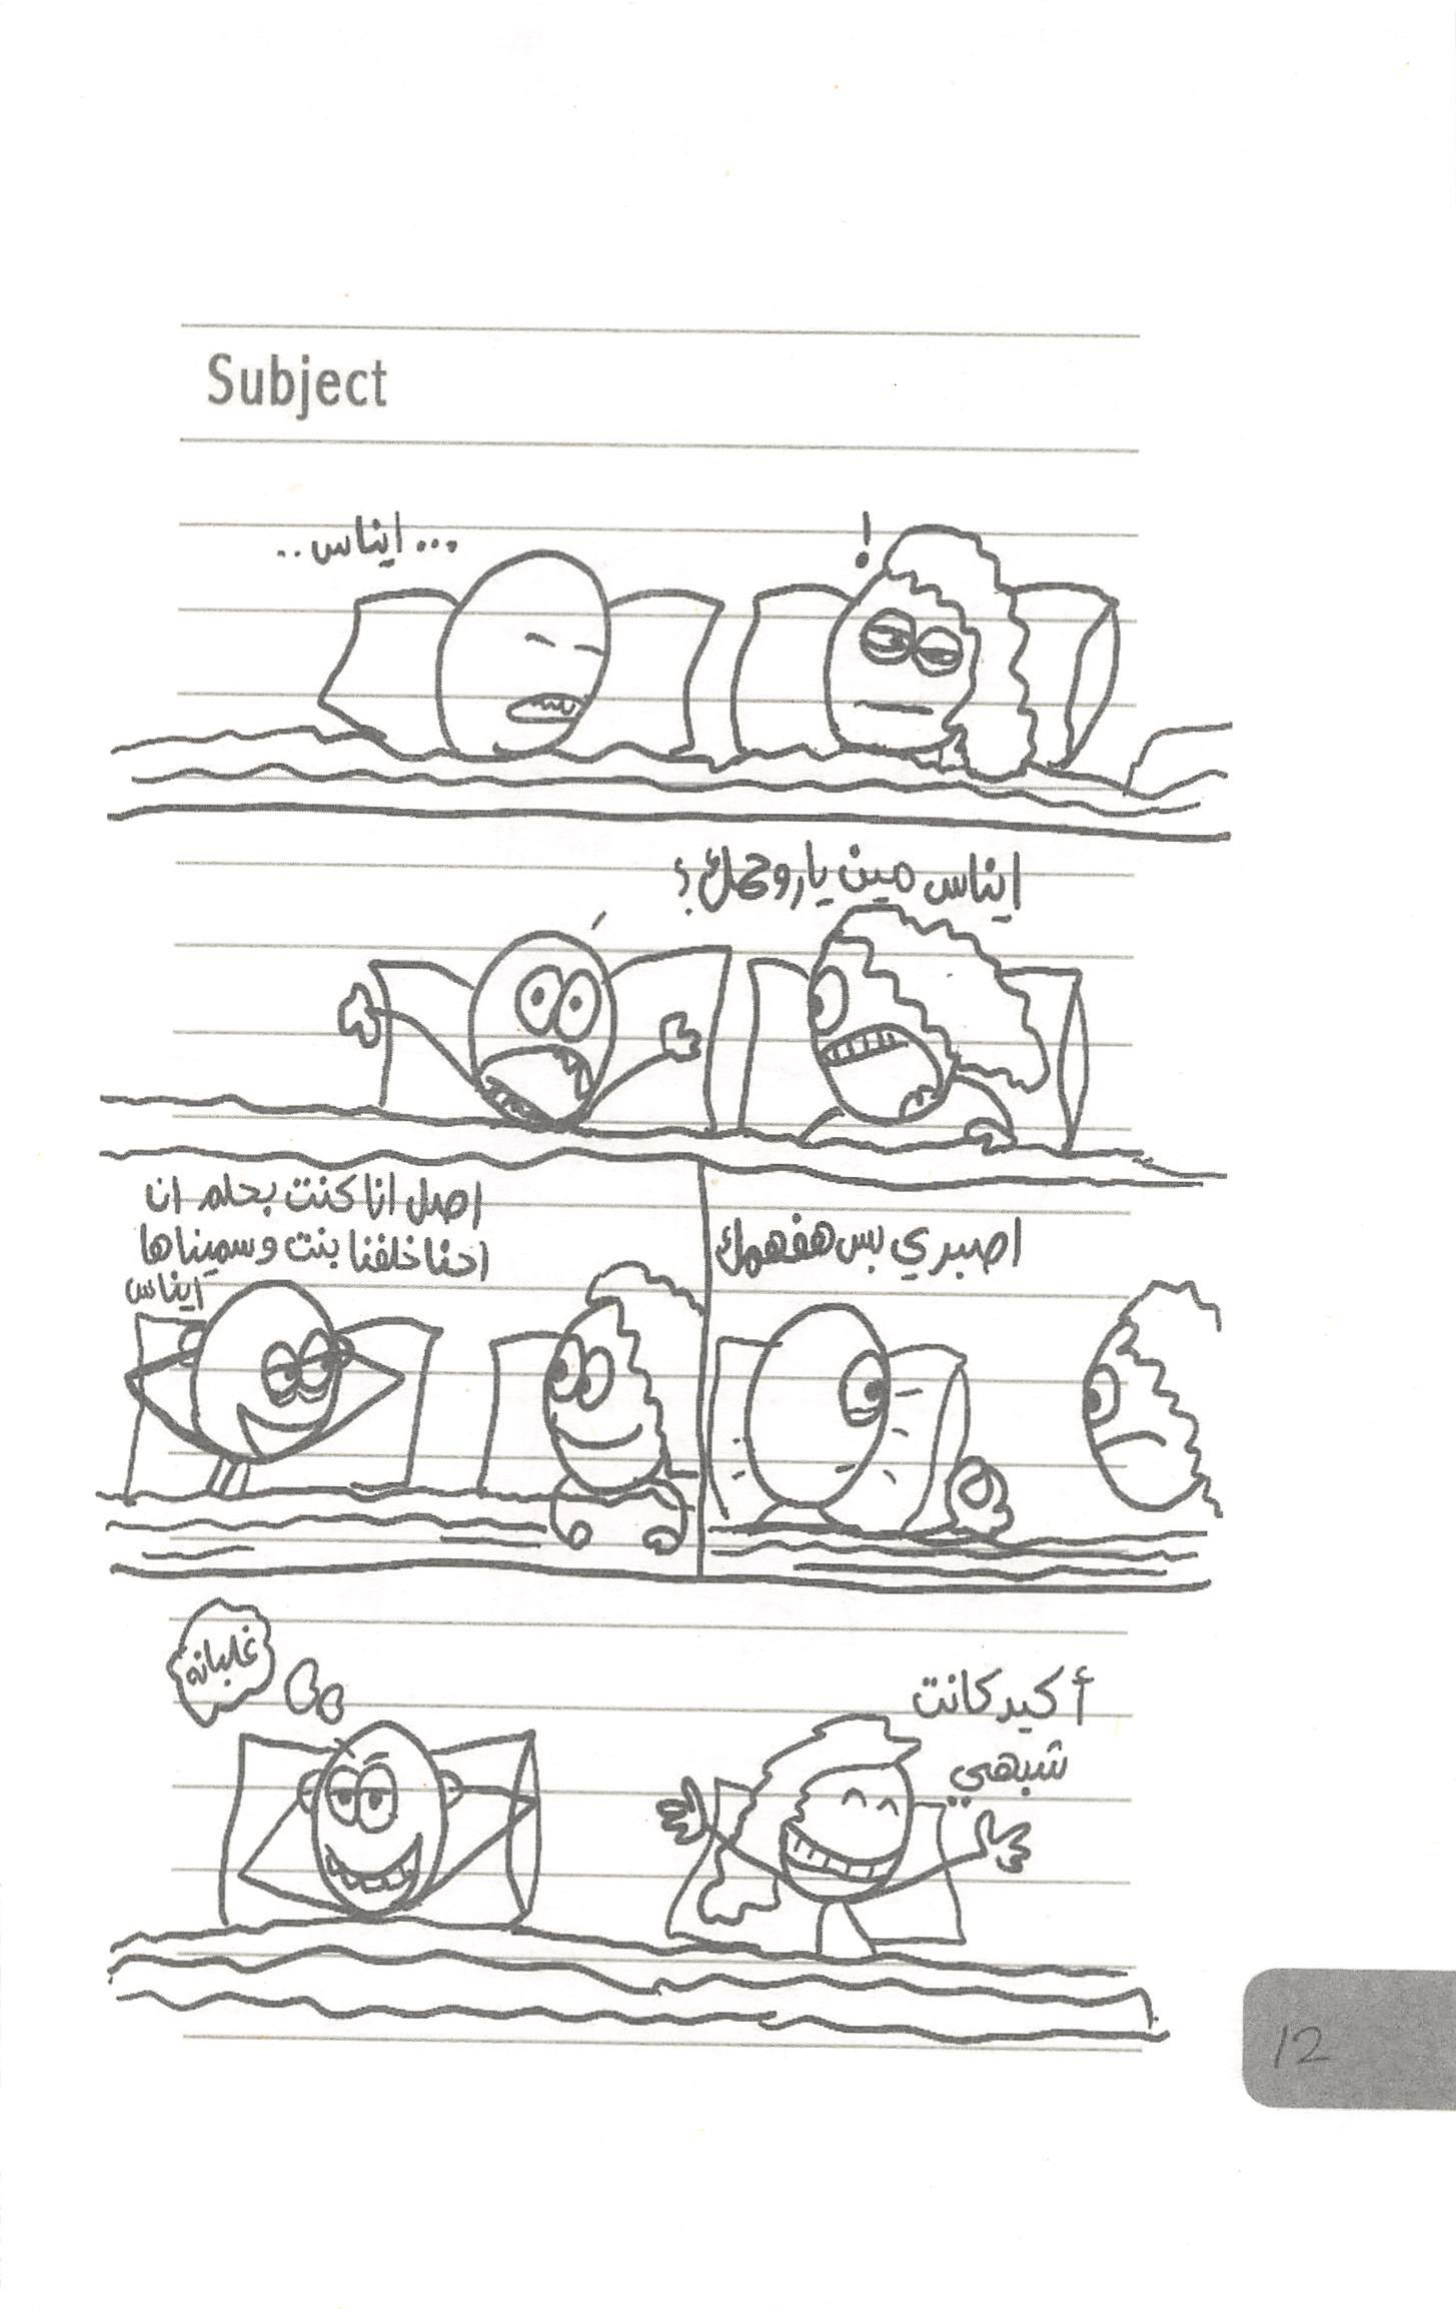 Subject
... ايناس ..
!
ايناس مين يا روحمك؟
اصبري بس هفهمك
اصل انا كنت بحلم ان
احنا خلفنا بنت وسميناها
ايناس
أكيد كانت
شبهي
غلبانه
12